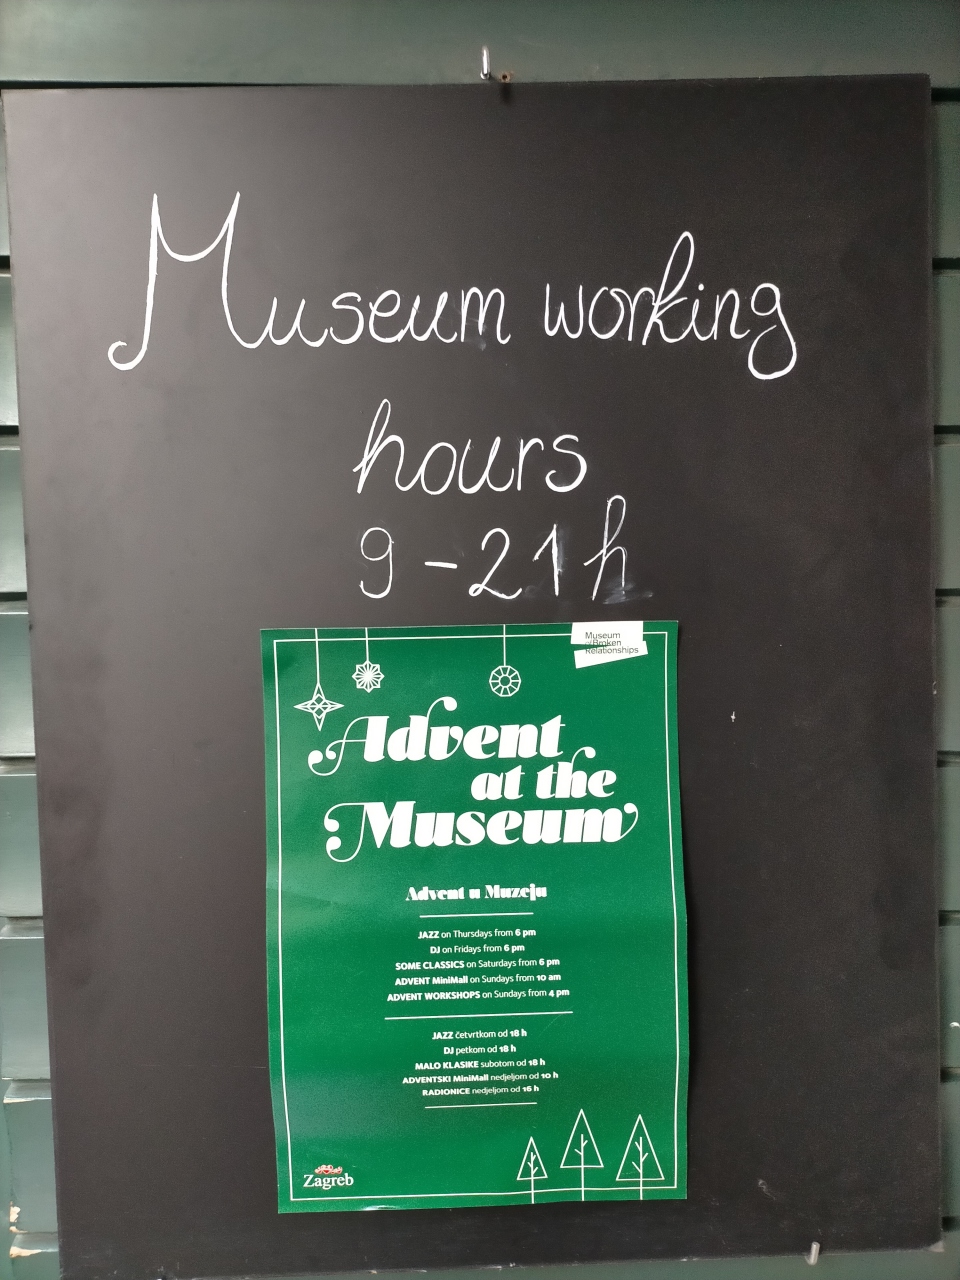 Museum working
hours
9-21h
Museum
of Broken
Relationships
Advent
at the
Museum
Advent u Muzeju
JAZZ on Thursdays from 6 pm
DJ on Fridays from 6 pm
SOME CLASSICS on Saturdays from 6 pm
ADVENT MiniMall on Sundays from 10 am
ADVENT WORKSHOPS on Sundays from 4 pm
JAZZ četvrtkom od 18 h
DJ petkom od 18 h
MALO KLASIKE subotom od 18 h
ADVENTSKI MiniMall nedjeljom od 10 h
RADIONICE nedjeljom od 16 h
Zagreb